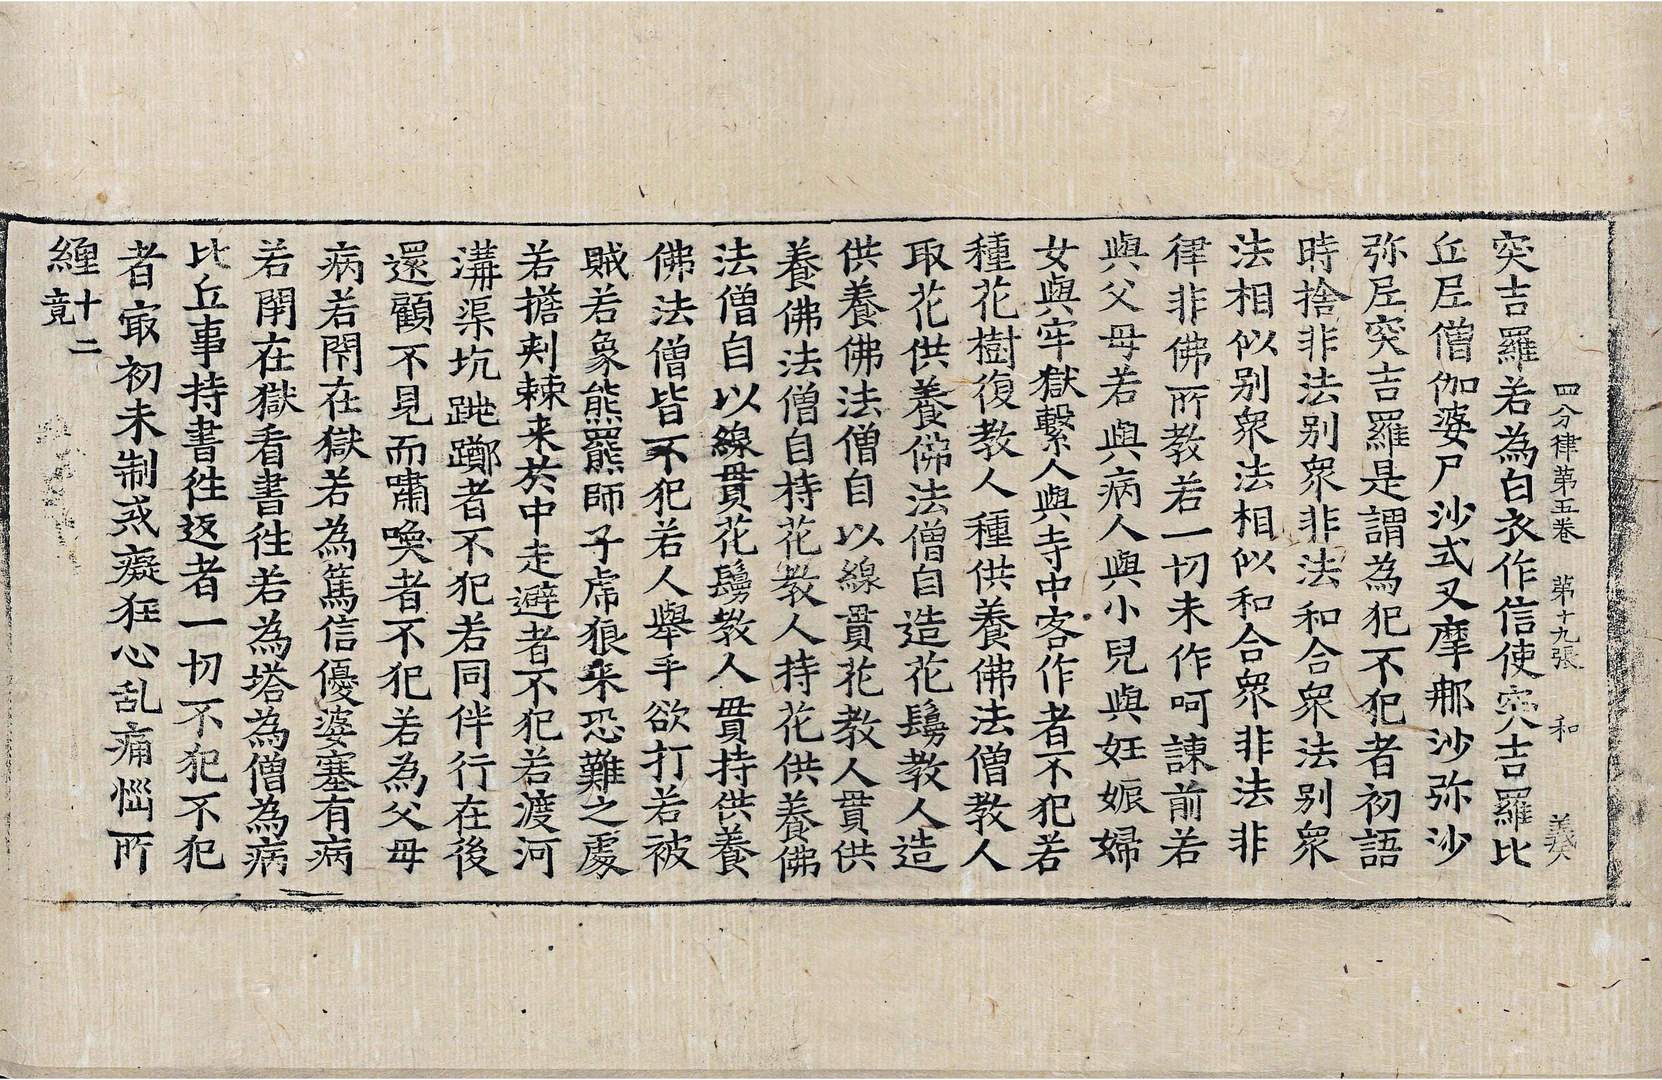 四分律第五卷 第十九張 和 義天
突吉羅若為白衣作信使突吉羅比
丘尼僧伽婆尸沙式叉摩那沙弥沙
弥尼突吉羅是謂為犯不犯者初語
時捨非法別衆非法和合衆法別衆
法相似別衆法相似和合衆非法非
律非佛所教若一切未作呵諫前若
與父母若與病人與小兒與妊娠婦
女與牢獄繫人與寺中客作者不犯若
種花樹復教人種供養佛法僧教人
取花供養佛法僧自造花鬘教人造
供養佛法僧自以線貫花教人貫供
養佛法僧自持花教人持花供養佛
法僧自以線貫花鬘教人貫持供養
佛法僧皆不犯若人舉手欲打若被
賊若象熊羆師子虎狼来恐難之處
若擔刾棘来於中走避者不犯若渡河
溝渠坑跳躑者不犯若同伴行在後
還顧不見而嘯喚者不犯若為父母
病若閇在獄若為篤信優婆塞有病
若閇在獄看書徃若為塔為僧為病
比丘事持書徃返者一切不犯不犯
者㝡初未制戒癡狂心乱痛惱所
纏十二竟